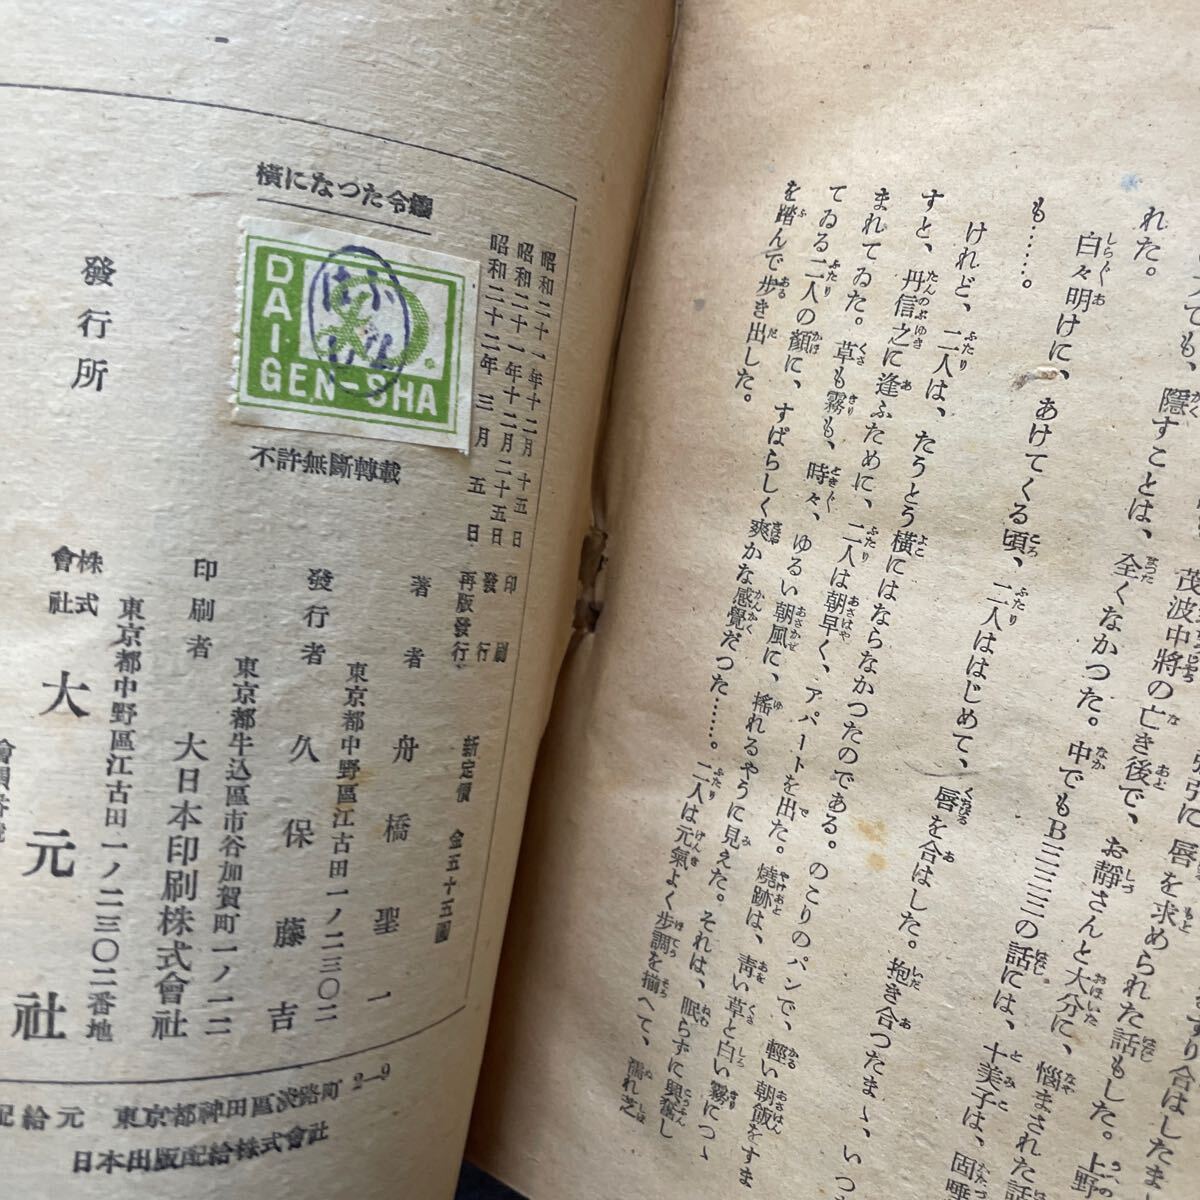 れた。
白々明けに、あけてくる頃、二人ははじめて、唇を合はした。抱き合つたまゝ、いつ
も……。
けれど、二人は、たうとう横にはならなかつたのである。のこりのパンで、輕い朝飯をすま
すと、丹信之に逢ふために、二人は朝早く、アパートを出た。燒跡は、靑い草と白い霧につゝ
まれてゐた。草も霧も、時々、ゆるい朝風に、搖れるやうに見えた。それは、眠らずに興奮し
てゐる二人の顏に、すばらしく爽かな感覺だつた……。二人は元氣よく步調を揃へて、濡れ芝
を踏んで步き出した。
茂波中將の亡き後で、お靜さんと大分に、惱まされた話
隱すことは、全くなかつた。中でもB三三三の話には、十美子は、固唾
唇を求められた話もした。上野
橫になつた令孃
DAIGEN-SHA
不許無斷轉載
昭和二十一年十二月十五日 印刷
昭和二十一年十二月二十五日 發行
昭和二十二年三月五日 再版發行
新定價 金五十五圓
著者 舟橋聖一
東京都中野區江古田一ノ二三〇二
發行者 久保藤吉
東京都牛込區市谷加賀町一ノ一二
印刷者 大日本印刷株式會社
東京都中野區江古田一ノ二三〇二番地
發行所 株式會社 大元社
配給元 東京都神田區淡路町2—9
日本出版配給株式會社